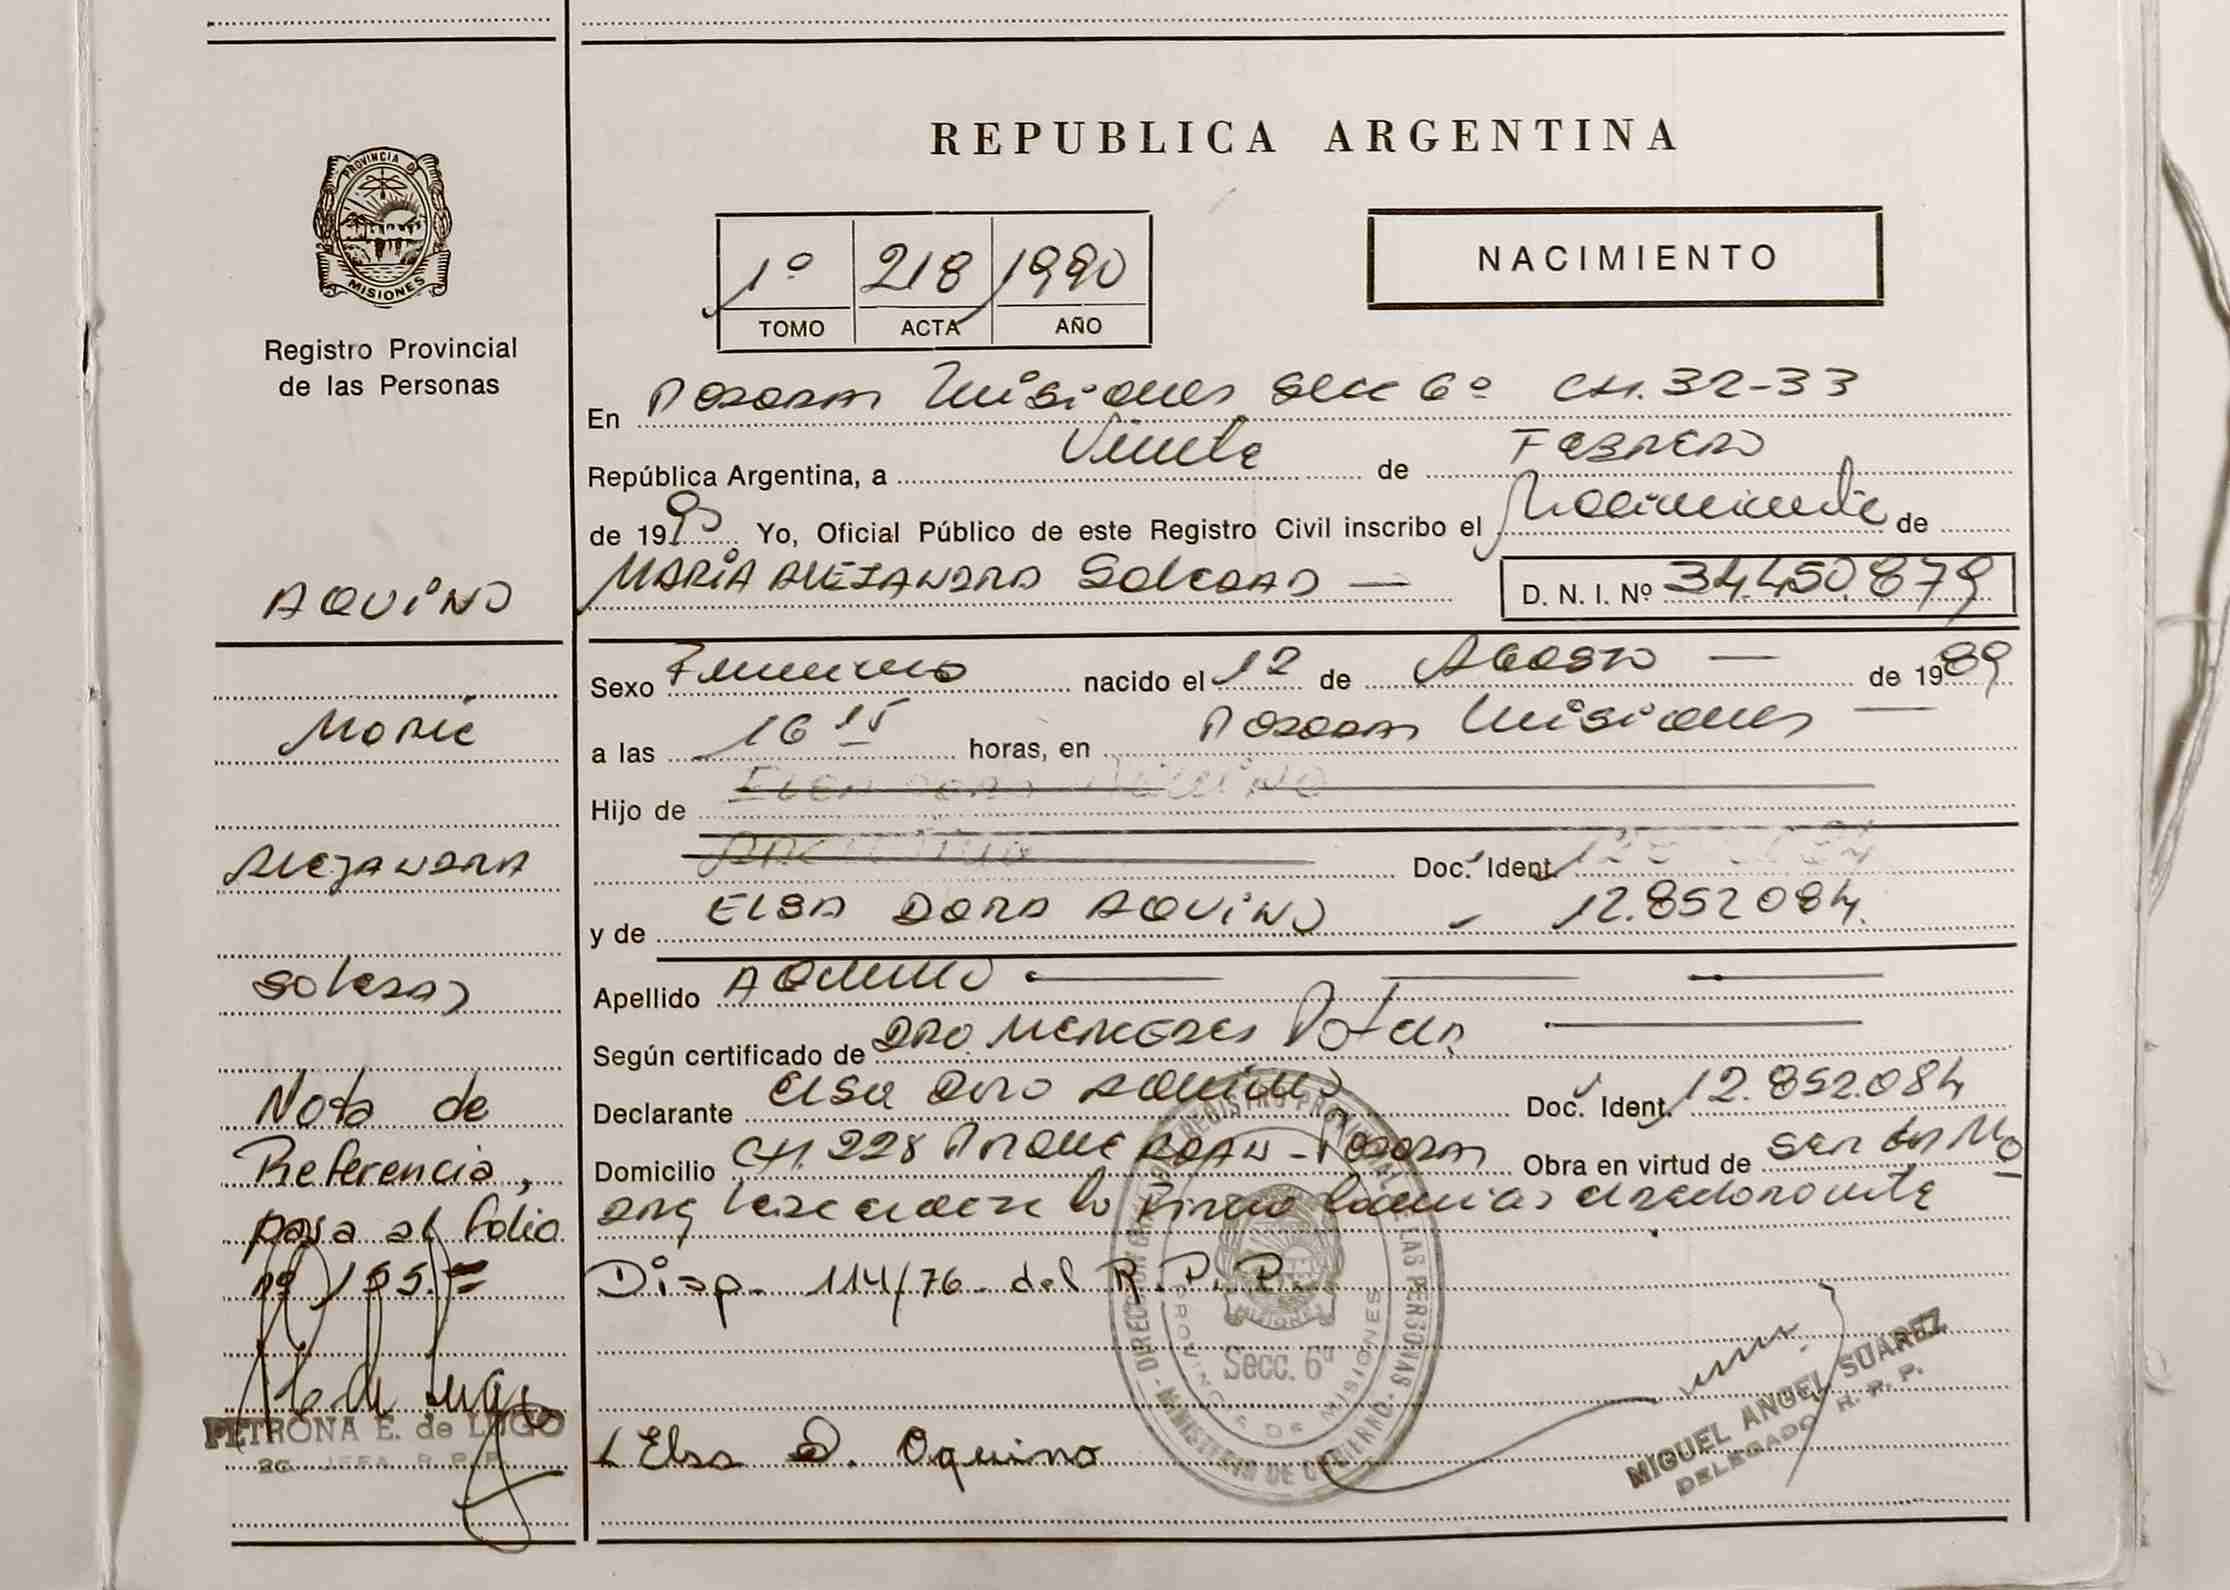 REPUBLICA ARGENTINA
PROVINCIA DE
MISIONES
Registro Provincial
de las Personas
1º 218 1990
TOMO ACTA AÑO
NACIMIENTO
En Posadas Misiones Secc 6º CH. 32-33
República Argentina, a Veinte de Febrero
de 1990 Yo, Oficial Público de este Registro Civil inscribo el Nacimiento de
AQUINO
MARIA ALEJANDRA Soledad — D. N. I. Nº 34.450.879
Sexo Femenino nacido el 12 de Agosto — de 1989
Maria
a las 16 15 horas, en Posadas Misiones —
Hijo de
Alejandra
Doc. Ident.
y de ELSA DORA AQUINO - 12.852084.
Soledad
Apellido AQUINO
Según certificado de Dra. Mercedes
Nota de
Referencia,
pasa al folio
nº 155.=
Declarante Elsa Dora Aquino Doc. Ident. 12.852.084
Domicilio CH. 228 Parque Adam - Posadas Obra en virtud de ser la Ma
dre
Disp. 114/76 del R.P.P.
DIRECCION GRAL. DEL REGISTRO PROVINCIAL DE LAS PERSONAS
MINISTERIO DE GOBIERNO
PROVINCIA DE MISIONES
Secc. 6ª
PETRONA E. de LUGO
JEFA R. P. P.
Elsa D. Aquino
MIGUEL ANGEL SUAREZ
DELEGADO R. P. P.